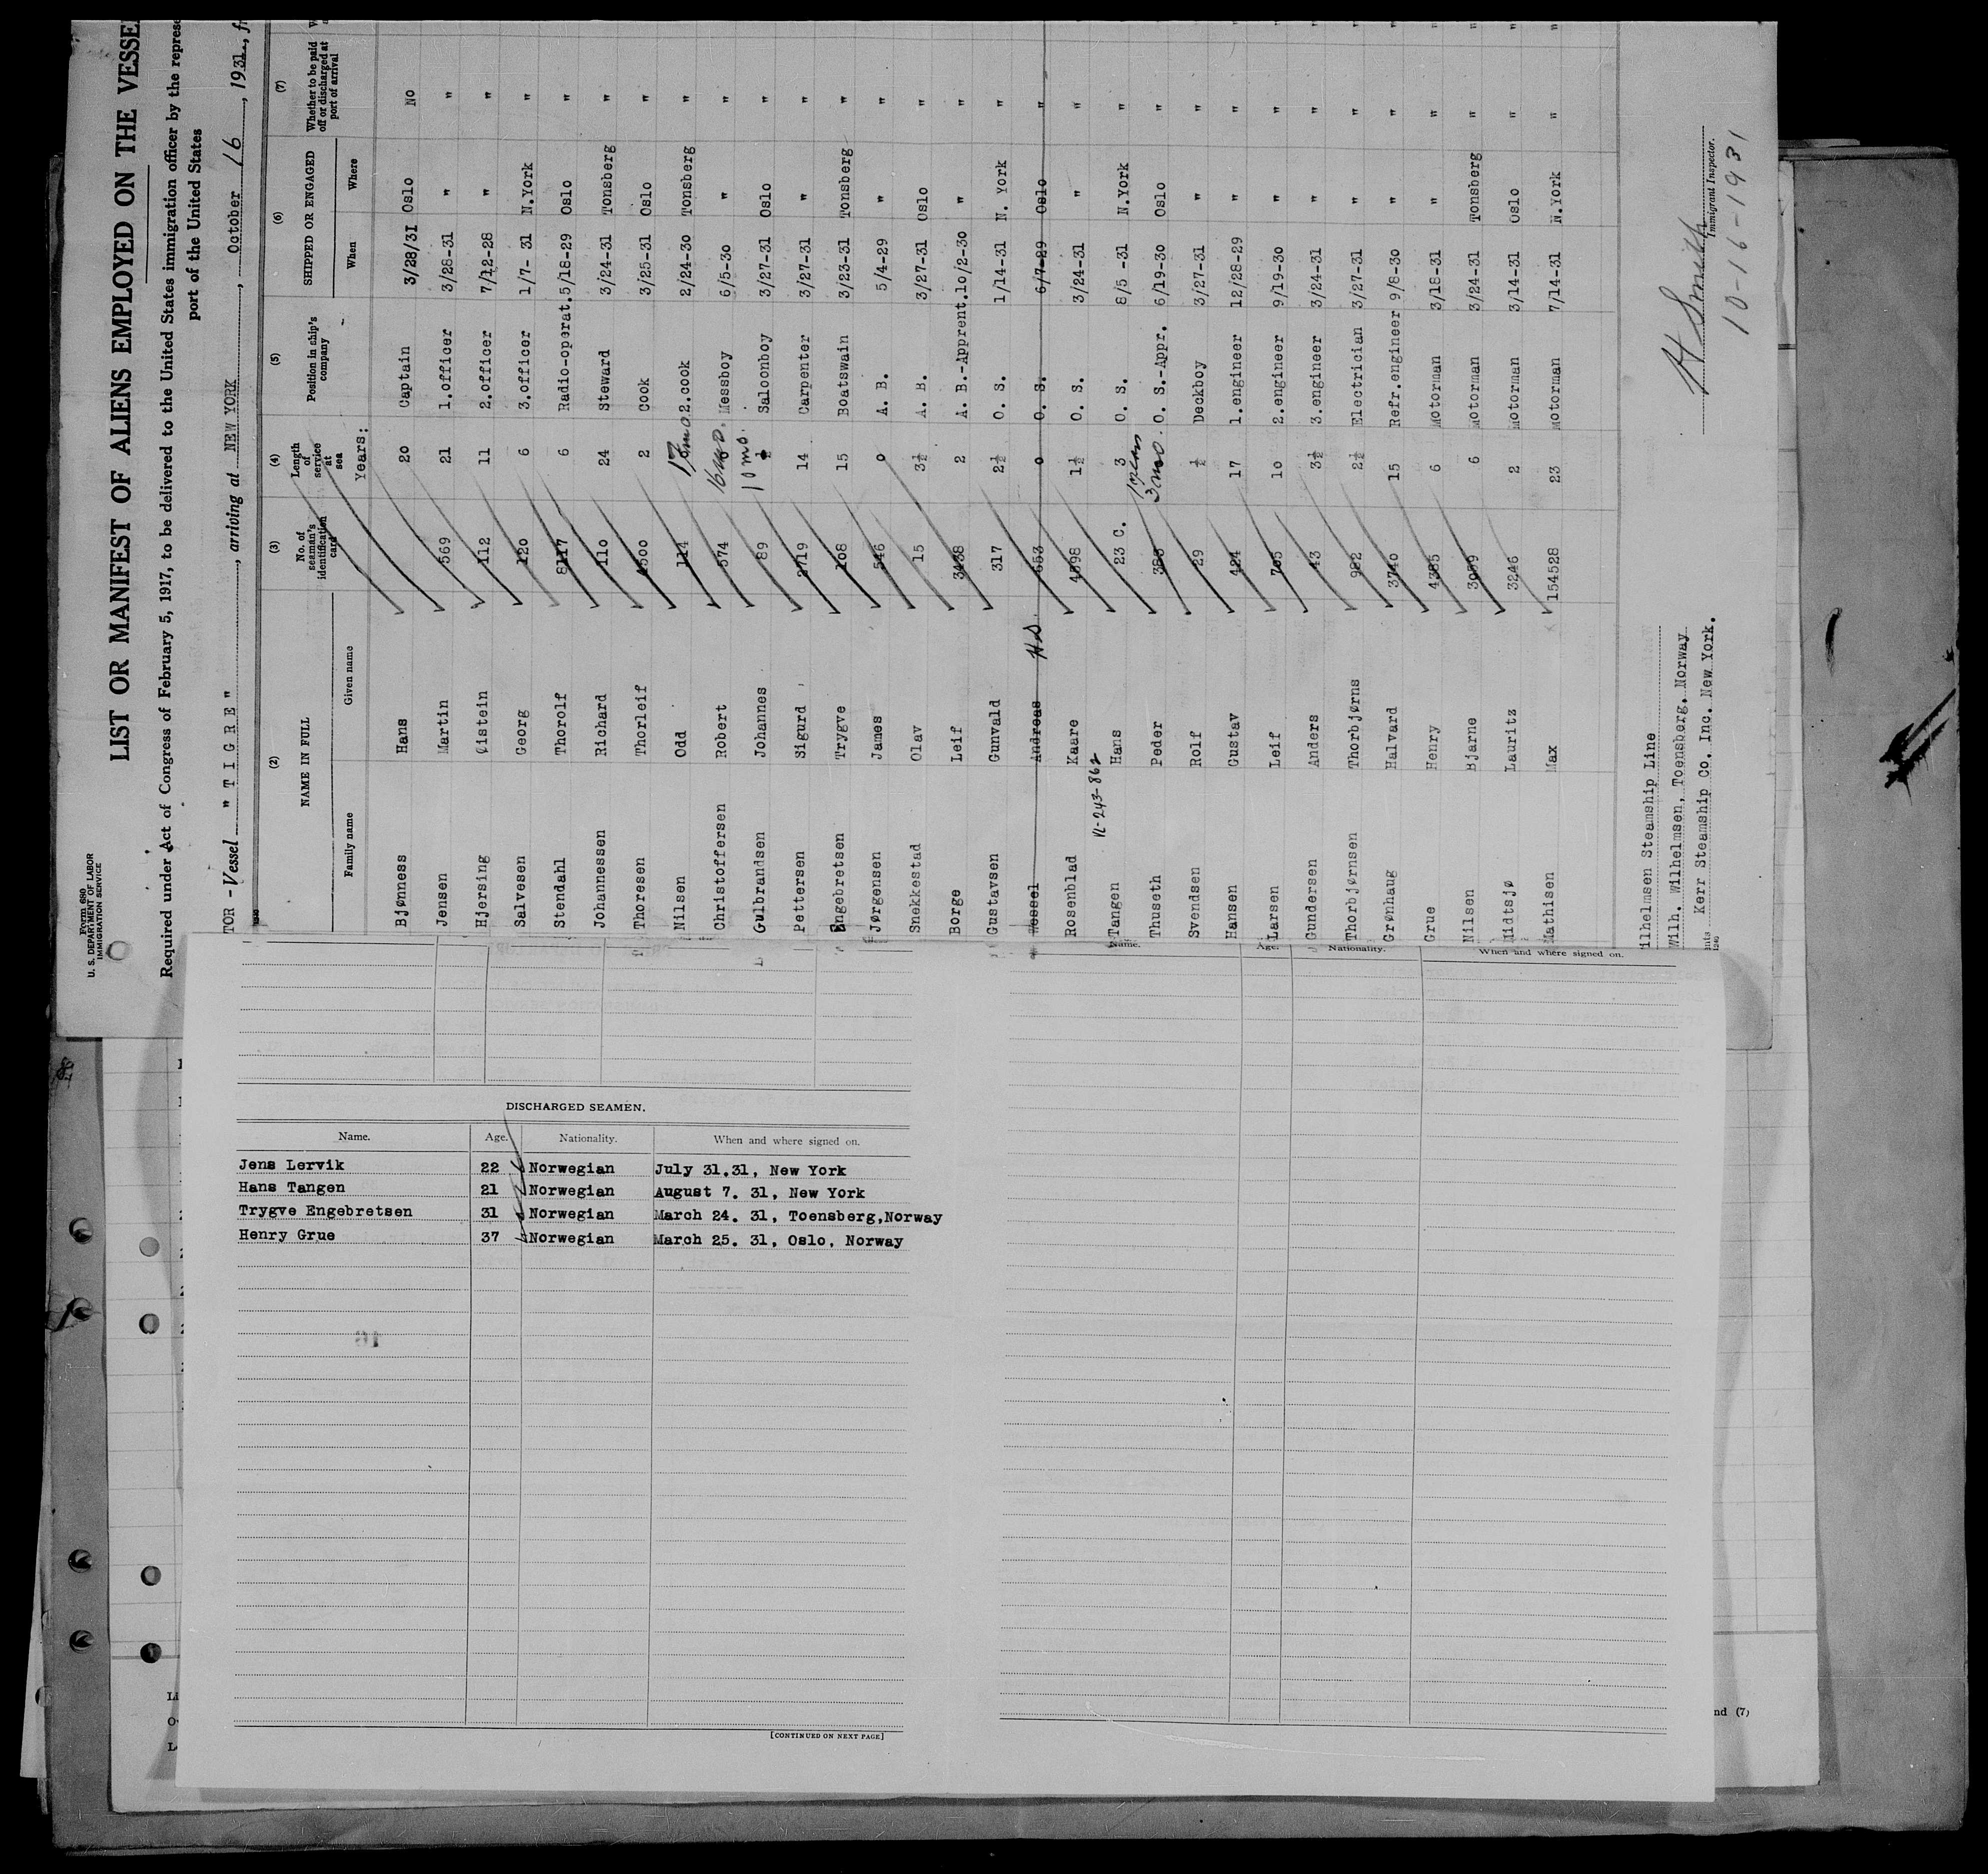 Form 680
U. S. DEPARTMENT OF LABOR
IMMIGRATION SERVICE
LIST OR MANIFEST OF ALIENS EMPLOYED ON THE VESSE
Required under Act of Congress of February 5, 1917, to be delivered to the United States immigration officer by the represe
port of the United States
TOR - Vessel " T I G R E ", arriving at NEW YORK, October 16, 1931, fr
(2) (3) (4) (5) (6) (7)
NAME IN FULL No. of seaman's identification card Length of service at sea Position in ship's company SHIPPED OR ENGAGED Whether to be paid off or discharged at port of arrival
Family name Given name Years: When Where
Bjønness Hans 20 Captain 3/28/31 Oslo No
Jensen Martin 569 21 1.officer 3/28-31 " "
Hjersing Øistein 112 11 2.officer 7/12-28 " "
Salvesen Georg 120 6 3.officer 1/7- 31 N.York "
Stendahl Thorolf 8117 6 Radio-operat. 5/18-29 Oslo "
Johannessen Richard 110 24 Steward 3/24-31 Tonsberg "
Thoresen Thorleif 4500 2 Cook 3/25-31 Oslo "
Nilsen Odd 114 2.cook 2/24-30 Tonsberg "
Christoffersen Robert 574 16 mo. Messboy 6/5-30 " "
Gulbrandsen Johannes 89 10 mo. Saloonboy 3/27-31 Oslo "
Pettersen Sigurd 2719 14 Carpenter 3/27-31 " "
Engebretsen Trygve 108 15 Boatswain 3/23-31 Tonsberg "
Jørgensen James 546 0 A. B. 5/4-29 " "
Snekkestad Olav 15 3½ A. B. 3/27-31 Oslo "
Borge Leif 3438 2 A. B.-Apprent. 10/2-30 " "
Gustavsen Gunvald 317 2½ O. S. 1/14-31 N. York "
Wessel Andreas H.S. 653 0 O. S. 6/7-29 Oslo "
Rosenblad Kaare 4598 1½ O. S. 3/24-31 " "
VL-243-862
Tangen Hans 23 C. 3 O. S. 8/5 -31 N.York "
Thuseth Peder 388 1 year 3 mo. O. S.-Appr. 6/19-30 Oslo "
Svendsen Rolf 29 ½ Deckboy 3/27-31 " "
Hansen Gustav 424 17 1.engineer 12/28-29 " "
Larsen Leif 705 10 2.engineer 9/19-30 " "
Gundersen Anders 43 3½ 3.engineer 3/24-31 " "
Thorbjørnsen Thorbjørns 982 2½ Electrician 3/27-31 " "
Grønhaug Halvard 3740 15 Refr.engineer 9/8-30 " "
Grue Henry 4385 6 Motorman 3/18-31 " "
Nilsen Bjarne 3059 6 Motorman 3/24-31 Tonsberg "
Midtsjø Lauritz 3246 2 Motorman 3/14-31 Oslo "
Mathisen Max 154528 23 Motorman 7/14-31 N.York "
ilhelmsen Steamship Line
Wilh. Wilhelmsen, Toensberg. Norway
Kerr Steamship Co. Inc. New York.
H Smith
Immigrant Inspector.
10-16-1931
DISCHARGED SEAMEN.
Name. Age. Nationality. When and where signed on.
Jens Lervik 22 Norwegian July 31.31, New York
Hans Tangen 21 Norwegian August 7. 31, New York
Trygve Engebretsen 31 Norwegian March 24. 31, Toensberg,Norway
Henry Grue 37 Norwegian March 25. 31, Oslo, Norway
[CONTINUED ON NEXT PAGE]
Name. Age. Nationality. When and where signed on.
nd (7)